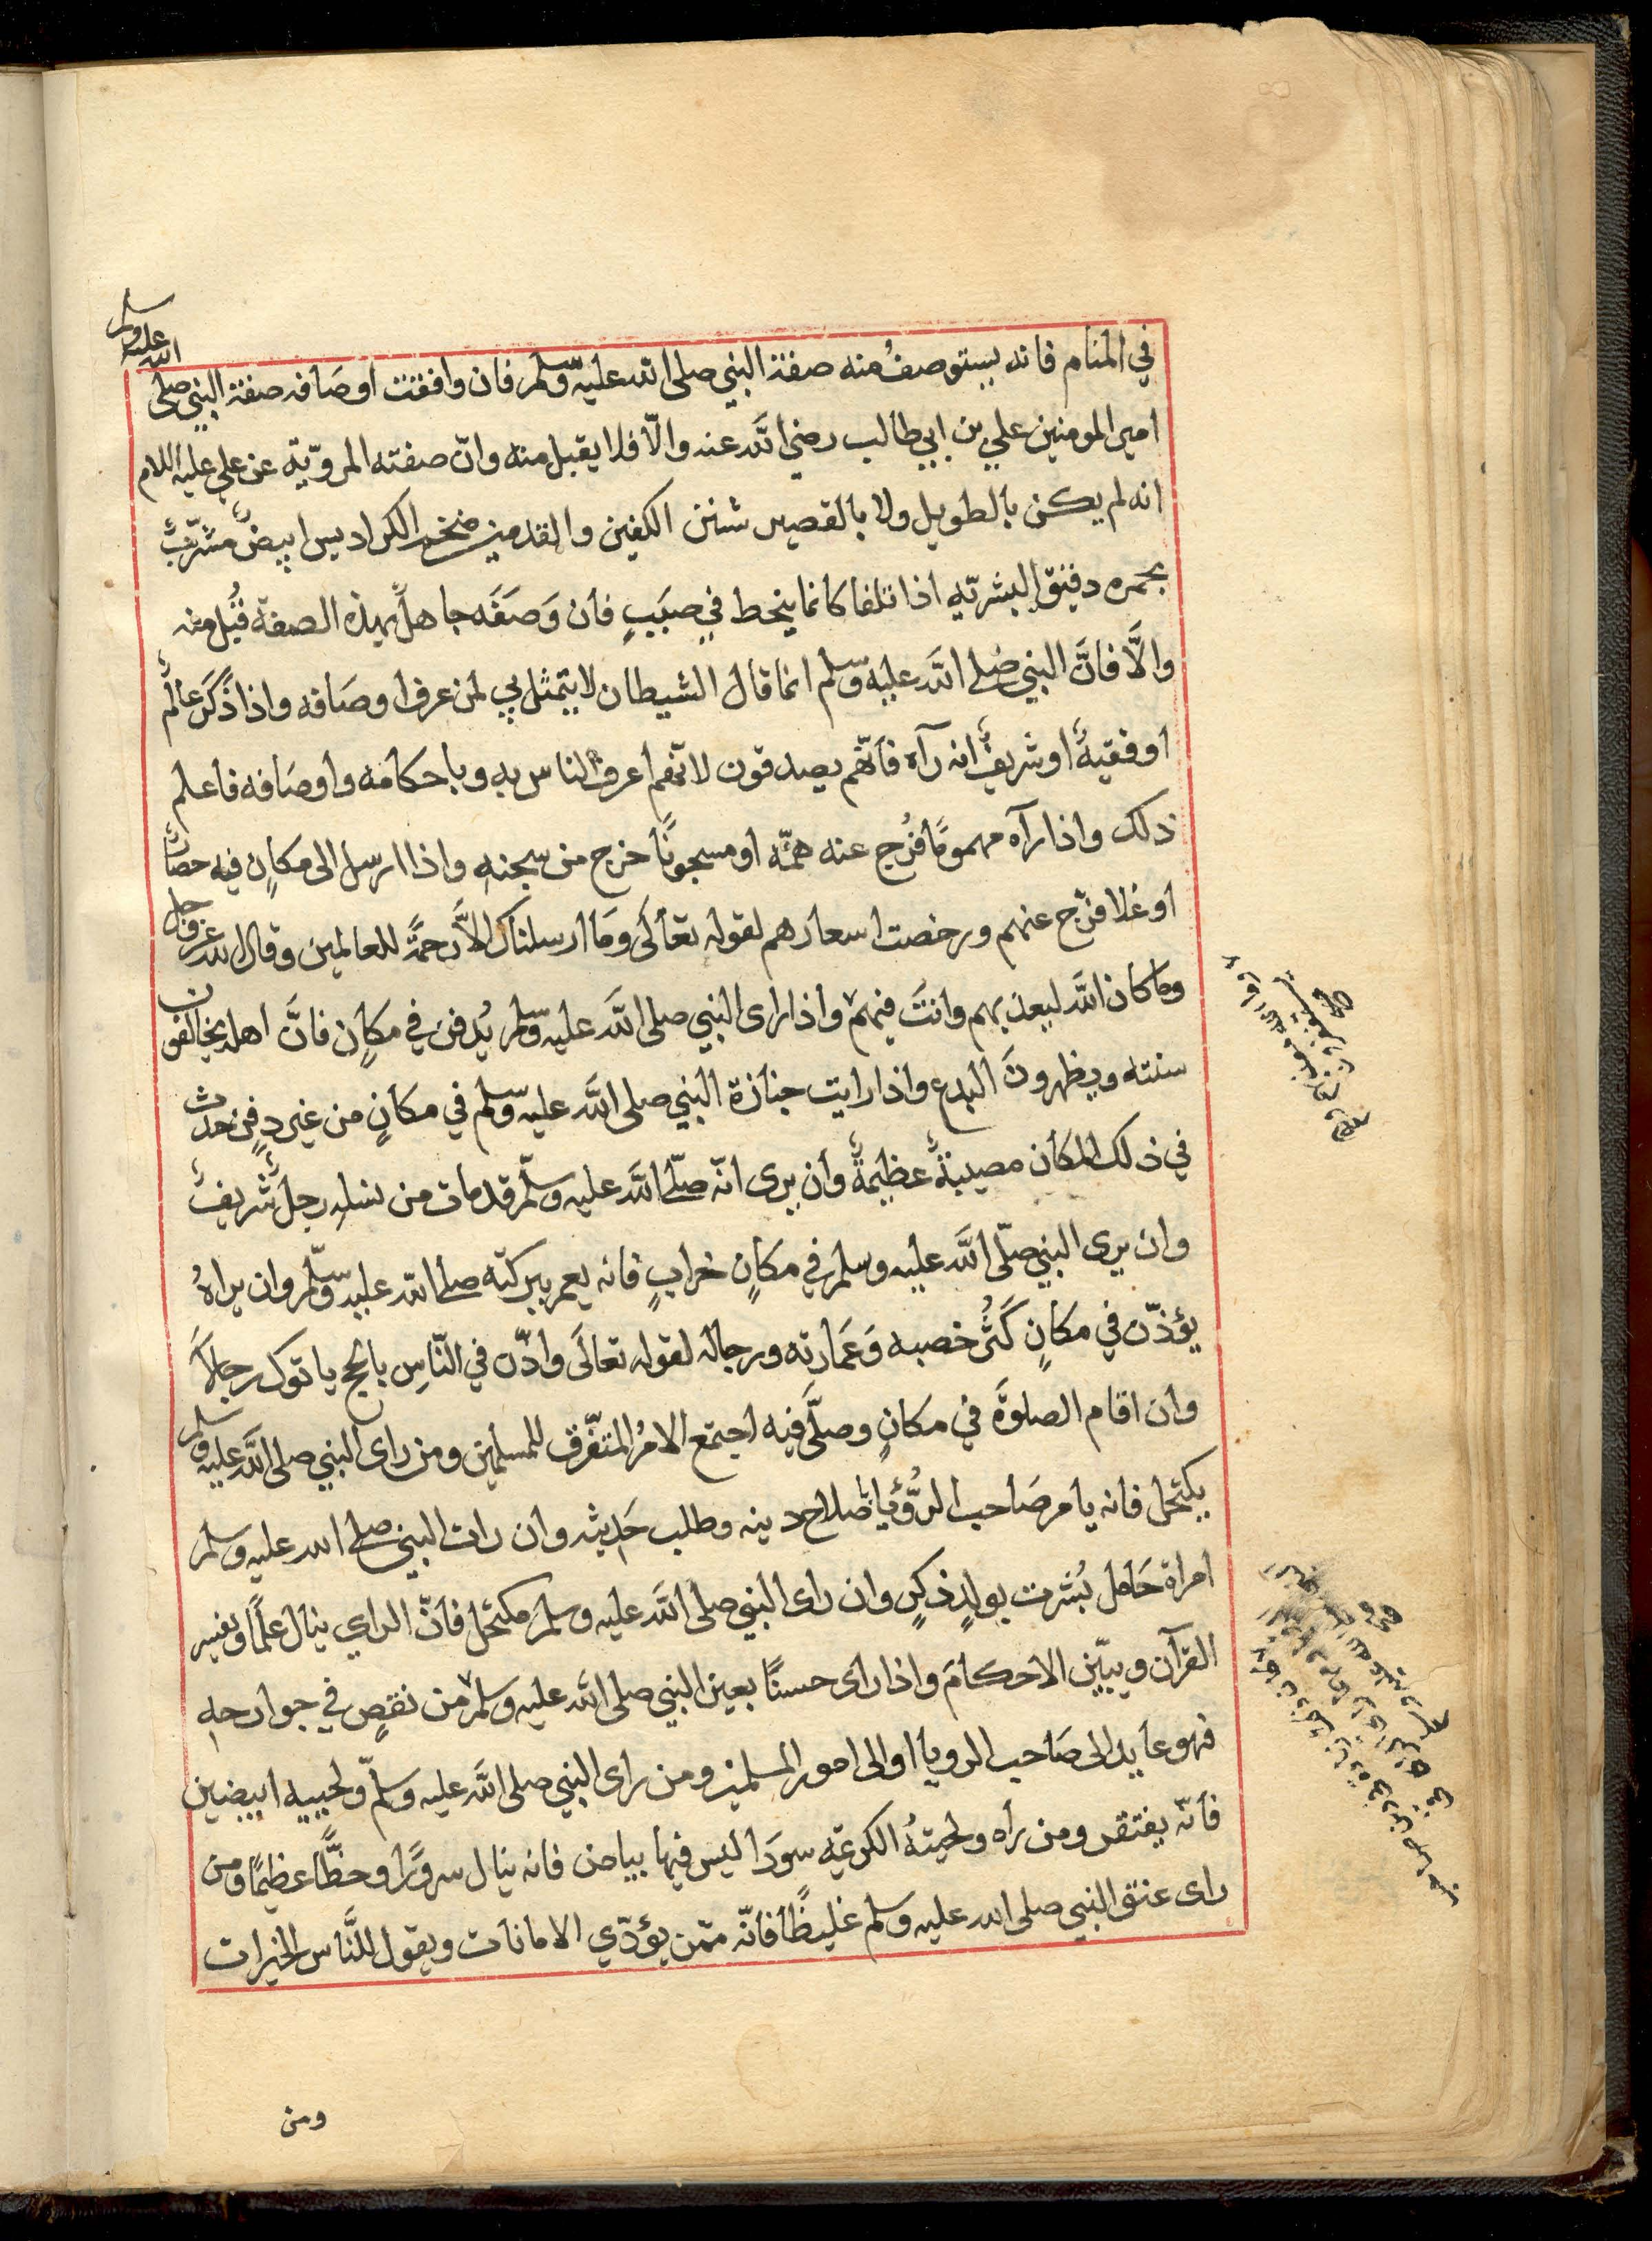 في المنام فانه يستوصفُ منه صفة النبي صلى الله عليه وسلم فان وافقت اوصَافه صفة النبي صلى
الله عليه وسلم
امير المومنين علي بن ابي طالب رضي الله عنه والّا فلا يقبل منه وانّ صفته المرويّة عن علي عليه اللام
انه لم يكن بالطويل ولا بالقصير شثن الكفين والقدمين ضخم الكراديس ابيضٌ مشرّبٌ
بحمره دقيق البشريّه اذا تلفا كانما ينحط في صبَبٍ فان وَصَفَه جاهلٌ بهذه الصفة قُبل منه
والَّا فانَّ النبي صلى الله عليه وسلم انما قال الشيطان لا يتمثل بي لمن عرف اوصَافه واذا ذَكَرَ عالمٌ
او فقيهٌ او شريفٌ انه رآه فانّهم يصدقون لانّهم اعرف الناس به وباحكامه واوصَافه فاعلم
ذلك واذا رآه مهمومًا فُرج عنه همّه او مسجونًا خرج من سجنهِ واذا ارسل الى مكانٍ فيه حصَارٌ
او غلا فرّج عنهم ورخصت اسعارهم لقوله تعالَى ومَا ارسلناك الاَّ رحمةً للعالمين وقال الله عز وجل
وما كان الله ليعذبهم وانتَ فيهم واذا راى النبي صلى الله عليه وسلم يُدفن في مكانٍ فانَّ اهله يخالفون
سنته ويظهرونَ البدع واذا رايت جنازة النبي صلى الله عليه وسلم في مكانٍ من غير دفنٍ حدث
في ذلك المكان مصيبةٌ عظيمةٌ وان يرى انّه صلّى الله عليه وسلّم قد مات من نسلهِ رجلٌ شريفٌ
وان يرى النبي صلّى الله عليه وسلم في مكانٍ خرابٍ فانه يعمر ببركته صلى الله عليه وسلّم وان يراهُ
يؤذّن في مكانٍ كَثُر خصبه وَعَمَارته ورجاله لقوله تعالَى واذّن في النّاسِ بالحج ياتوك رجالاً
وان اقام الصلوَة في مكانٍ وصلَّى فيه اجتمع الامرُ المتفّرق للمسلمين ومن راى النبي صلى الله عليه وسلم
يكتحل فانه يامر صَاحب الرُّؤيا بصَلاح دينه وطلب حَديثه وان رات النبي صلى الله عليه وسلم
امراة حَامل بُشرت بولدٍ ذكرٍ وان راى النبي صلى الله عليه وسلم مكتحل فانّ الراي ينال علمًا ويفسر
القرآن ويبيّن الاحكامَ واذا راى حسنًا بعين النبي صلى الله عليه وسلم من نقصٍ في جوارحه
فهو عايد الى صَاحب الرويا او الى امور المسلمين ومن راى النبي صلى الله عليه وسلّم ولحييه ابيضين
فانّه يفتقر ومن رأه ولحيتهُ الكريمّه سودَا ليس فيها بياض فانه ينال سرورًا وحظًّا عظيمًا ومن
راى عنق النبي صلى الله عليه وسلم غليظًا فانّه ممّن يؤدّي الامانات ويقول للنَّاس الخيرات
ومن